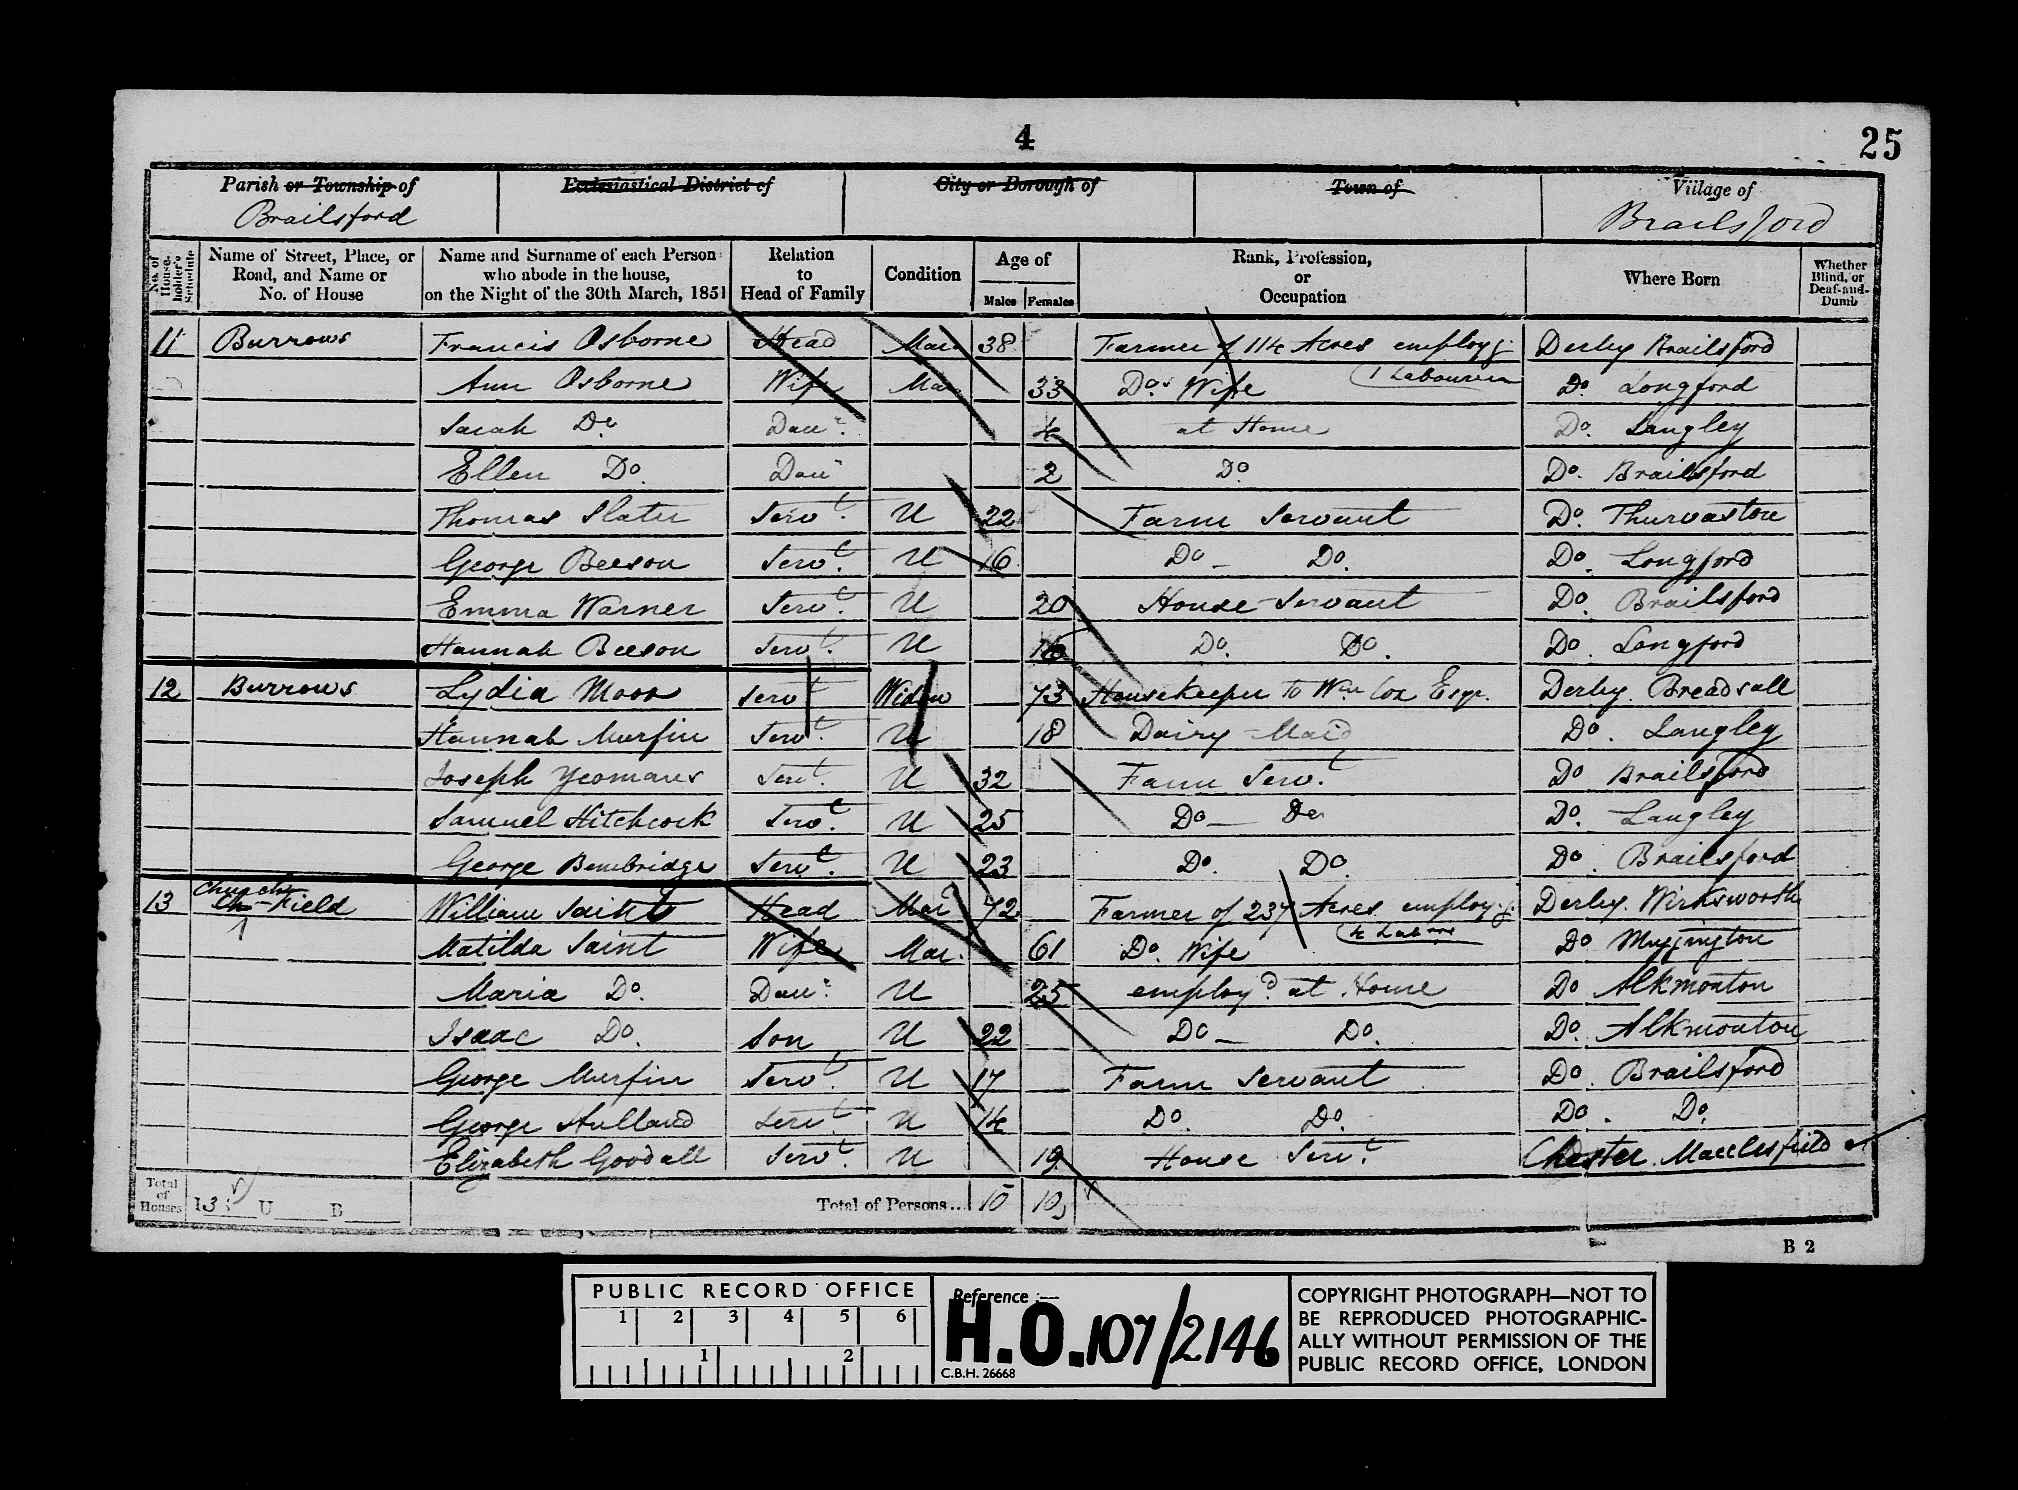 4
25
Parish or Township of Ecclesiastical District of City or Borough of Town of Village of
Brailsford Brailsford
No. of House-holder's Schedule Name of Street, Place, or Road, and Name or No. of House Name and Surname of each Person who abode in the house, on the Night of the 30th March, 1851 Relation to Head of Family Condition Age of Males Females Rank, Profession, or Occupation Where Born Whether Blind, or Deaf-and-Dumb
11 Burrows Francis Osborne Head Mar. 38 Farmer of 114 Acres employg. Derby Brailsford
1 Labourer
Ann Osborne Wife Mar 33 Do. Wife Do. Longford
Sarah Do Daur. 4 at Home Do. Langley
Ellen Do. Daur 2 Do. Do. Brailsford
Thomas Slater Servt. U 22 Farm Servant Do. Thurvaston
George Beeson Servt. U 16 Do - Do. Do. Longford
Emma Warner Servt. U 20 House Servant Do. Brailsford
Hannah Beeson Servt. U 16 Do. Do. Do. Longford
12 Burrows Lydia Moor Servt Widow 73 Housekeeper to Wm Cox Esqr. Derby. Breadsall
Hannah Murfin Servt. U 18 Dairy Maid Do. Langley
Joseph Yeomans Servt. U 32 Farm Servt. Do Brailsford
Samuel Hitchcock Servt. U 25 Do - Do Do. Langley
George Bembridge Servt. U 23 Do. Do. Do. Brailsford
13 Church Field William Saint Head Mar 72 Farmer of 237 Acres employg. Derby. Wirksworth
4 Labrs
Matilda Saint Wife Mar. 61 Do. Wife Do Muggington
Maria Do. Daur. U 25 employd. at Home Do Alkmonton
Isaac Do. Son U 22 Do - Do. Do. Alkmonton
George Murfin Servt. U 17 Farm Servant Do. Brailsford
George Hulland Servt. U 14 Do. Do. Do. Do.
Elizabeth Goodall Servt. U 19 House Servt. Chester Macclesfield
Total of Houses I 3 U B Total of Persons... 10 10
B 2
PUBLIC RECORD OFFICE
1 2 3 4 5 6
1 2
Reference :—
H.O.107/2146
C.B.H. 26668
COPYRIGHT PHOTOGRAPH—NOT TO
BE REPRODUCED PHOTOGRAPHIC-
ALLY WITHOUT PERMISSION OF THE
PUBLIC RECORD OFFICE, LONDON